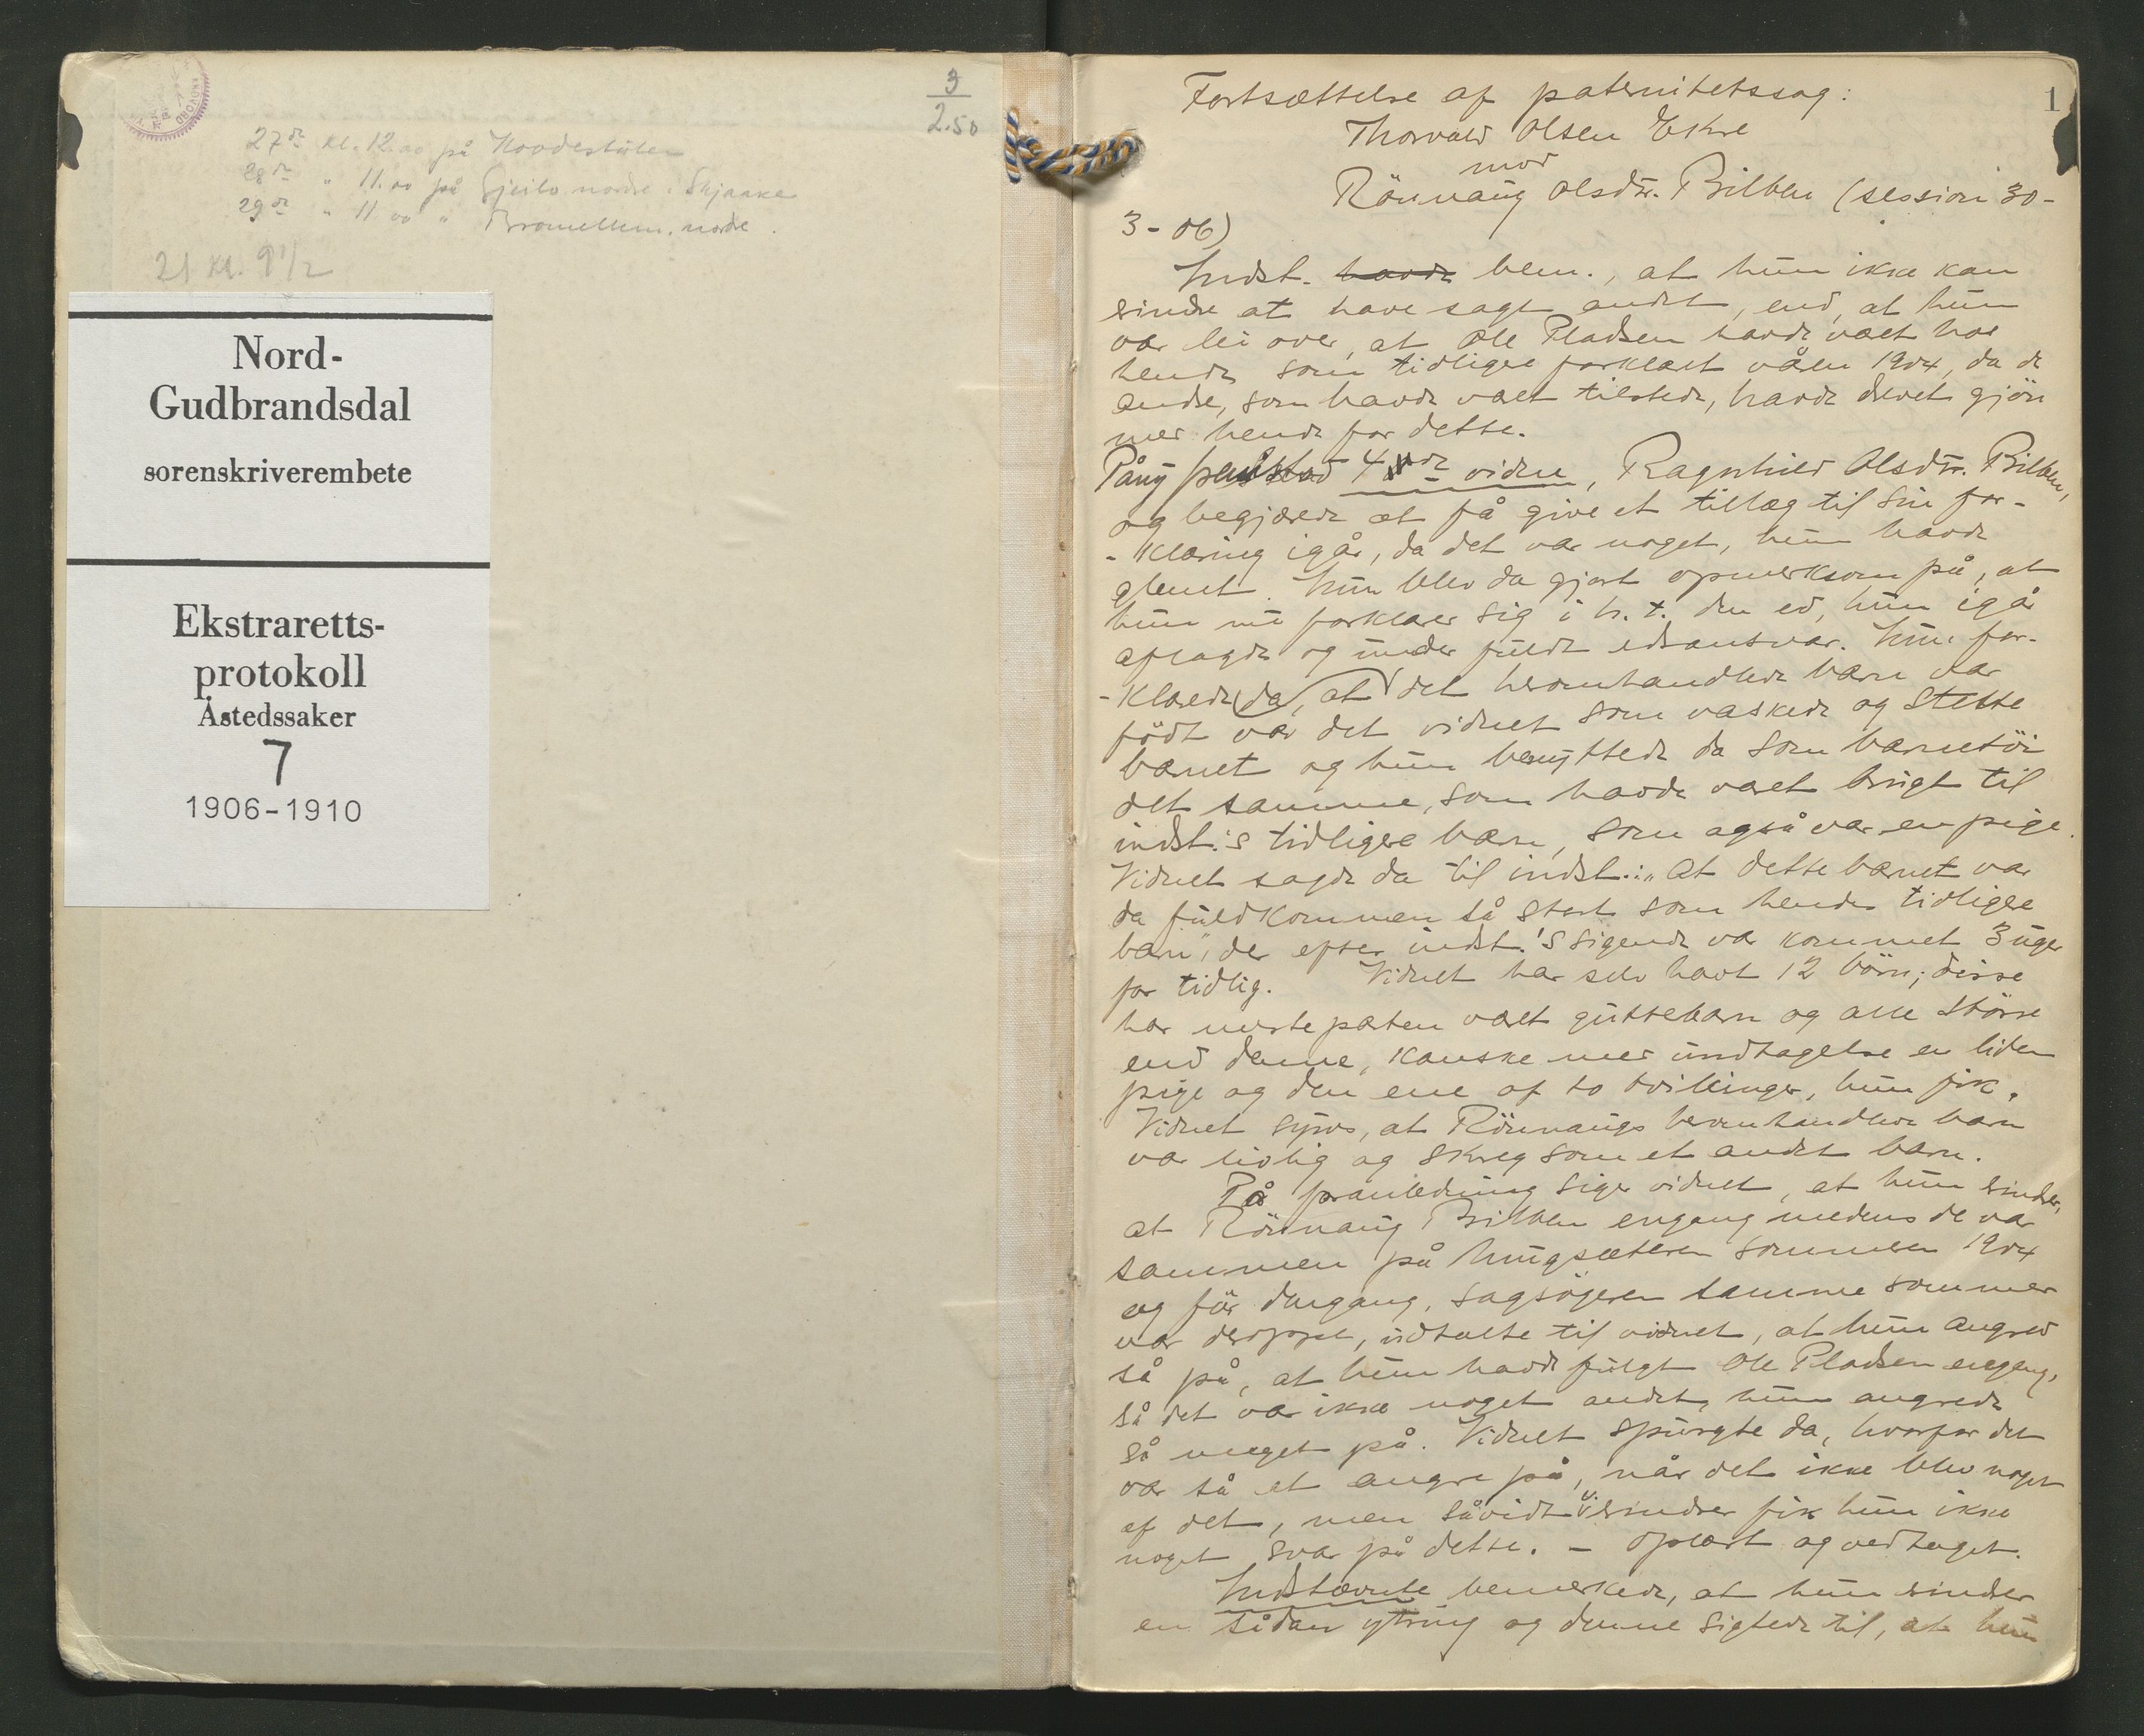 3
2.50
27de kl. 12.00 på
28de " 11.00 på Gjeilo nordre i Skjaake
29de " 11.00 " nordre.
21 kl. 9 1/2
Nord-
Gudbrandsdal
sorenskriverembete
Ekstraretts-
protokoll
Åstedssaker
7
1906-1910
1
Fortsættelse af paternitetssag:
Thorvald Olsen Ekre
mod
Rönnaug Olsdtr. Bilben (session 30-
3-06)
Indst. havde bem., at hun ikke kan
erindre at have sagt andet, end, at hun
var lei over, at Ole Pladsen havde været hos
hende som tidligere forklaret våren 1904, da de
andre, som havde været tilstede, havde drevet gjön
mer hende for dette.
Påny fremstod 4de vidne, Ragnhild Olsdtr. Bilben,
og begjærede at få give et tillæg til sin for-
-klaring igår, da det var noget, hun havde
glemt. Hun blev da gjort opmerksom på, at
hun nu forklarer sig i h. t. den ed, hun igår
aflagde og under fuldt edsansvar. Hun for-
-klarede da, at det heromhandlede barn var
födt var det vidnet som vaskede og stelte
barnet og hun benyttede da som barnetöi
det samme, som havde været brugt til
indst.'s tidligere barn, som også var en pige.
Vidnet sagde da til indst.: "At dette barnet var
da fuldkommen så stort som hendes tidligere
barn", der efter indst.'s sigende var kommet 3 uger
for tidlig. Vidnet har selv havt 12 börn; disse
har mesteparten været guttebarn og alle större
end denne, kanske med undtagelse en liden
pige og den ene af to tvillinger, hun fik.
Vidnet synes, at Rönnaugs heromhandlede barn
var livlig og skreg som et andet barn.
På foranledning siger vidnet, at hun erindrer,
at Rönnaug Bilben engang medens de var
sammen på sæteren sommeren 1904
og för dengang, sagsögeren samme sommer
var deroppe, udtalte til vidnet, at hun angred
så på, at hun havde fulgt Ole Pladsen engang,
så det var ikke noget andet, hun angrede
så meget på. Vidnet spurgte da, hvorfor det
var så et angre på, når det ikke blev noget
af det, men såvidt v. erindrer fik hun ikke
noget svar på dette. – Oplæst og vedtaget.
Indstævnte bemerkede, at hun erindrer
en sådan ytring og denne sigtede til, at hun